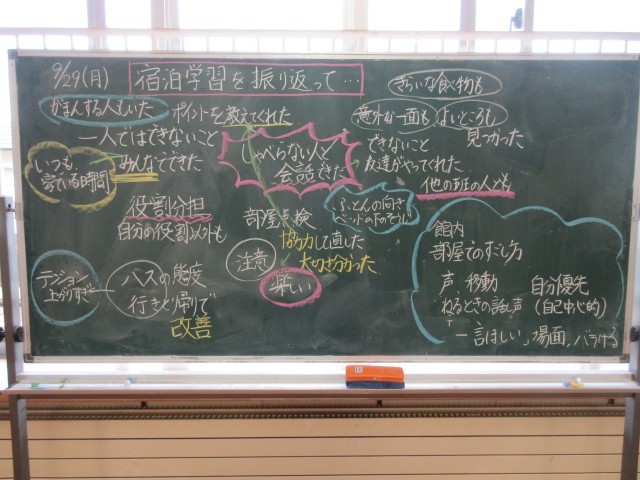 9/29(月) 宿泊学習を振り返って…
がまんする人もいた
ポイントを教えてくれた
一人ではできないこと
みんなでできた
いつも
寝ている時間
しゃべらない人と
会話できた
きらいな食べ物も
意外な一面も よいところも
見つかった
できないこと
友達がやってくれた
他の班の人とも
役割分担
自分の役割以外も
部屋点検
協力して直した
大切さ分かった
ふとんの向き
ベッドの下のそうじ
注意
難しい
テンション
上がりすぎ
バスの態度
行きと帰りで
改善
館内
部屋でのすごし方
声、移動
ねるときの話し声
自分優先
(自己中心的)
一言ほしい、場面、バラける